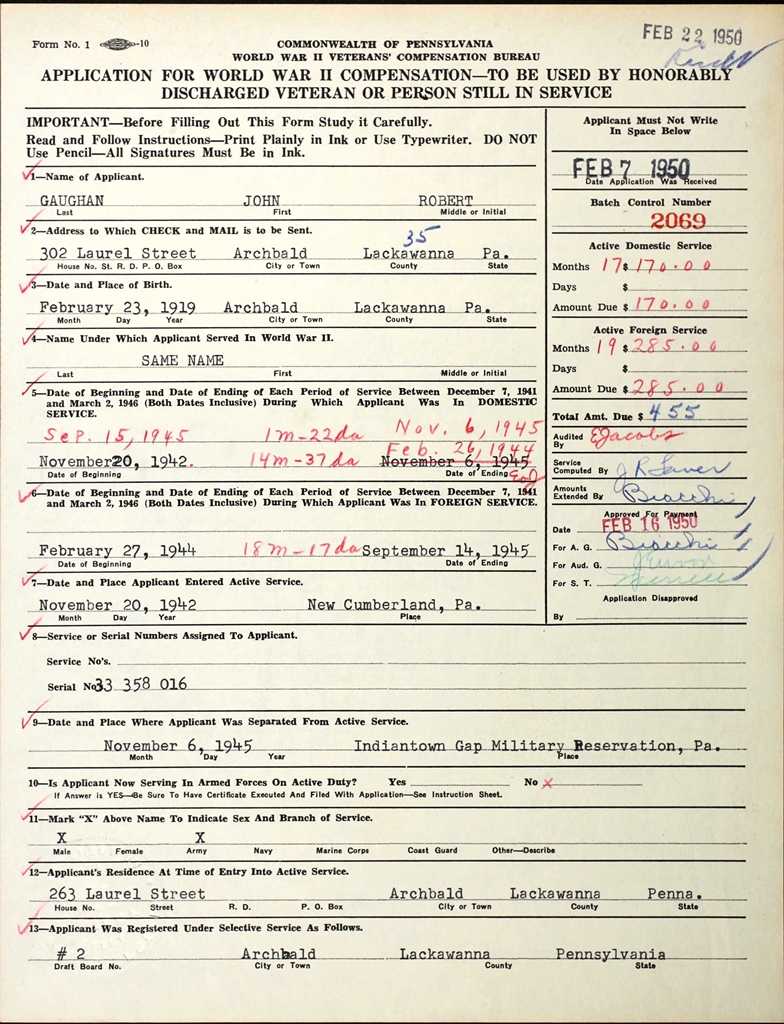 FEB 22 1950
Form No. 1 -10
COMMONWEALTH OF PENNSYLVANIA
WORLD WAR II VETERANS' COMPENSATION BUREAU
APPLICATION FOR WORLD WAR II COMPENSATION—TO BE USED BY HONORABLY
DISCHARGED VETERAN OR PERSON STILL IN SERVICE
IMPORTANT—Before Filling Out This Form Study it Carefully.
Read and Follow Instructions—Print Plainly in Ink or Use Typewriter. DO NOT
Use Pencil—All Signatures Must Be in Ink.
1—Name of Applicant.
GAUGHAN JOHN ROBERT
Last First Middle or Initial
2—Address to Which CHECK and MAIL is to be Sent.
35
302 Laurel Street Archbald Lackawanna Pa.
House No. St. R. D. P. O. Box City or Town County State
3—Date and Place of Birth.
February 23, 1919 Archbald Lackawanna Pa.
Month Day Year City or Town County State
4—Name Under Which Applicant Served In World War II.
SAME NAME
Last First Middle or Initial
5—Date of Beginning and Date of Ending of Each Period of Service Between December 7, 1941
and March 2, 1946 (Both Dates Inclusive) During Which Applicant Was in DOMESTIC
SERVICE.
Sep. 15, 1945 1m-22da Nov. 6, 1945
Feb. 26, 1944
November 20, 1942. 14m-37da November 6, 1945
Date of Beginning Date of Ending
6—Date of Beginning and Date of Ending of Each Period of Service Between December 7, 1941
and March 2, 1946 (Both Dates Inclusive) During Which Applicant Was In FOREIGN SERVICE.
February 27, 1944 18m-17da September 14, 1945
Date of Beginning Date of Ending
7—Date and Place Applicant Entered Active Service.
November 20, 1942 New Cumberland, Pa.
Month Day Year Place
Applicant Must Not Write
In Space Below
FEB 7 1950
Date Application Was Received
Batch Control Number
2069
Active Domestic Service
Months 17 $ 170.00
Days $
Amount Due $ 170.00
Active Foreign Service
Months 19 $ 285.00
Days $
Amount Due $ 285.00
Total Amt. Due $ 455
Audited
By EJacobs
Service
Computed By
Amounts
Extended By Biacchi
Approved For Payment
Date FEB 16 1950
For A. G. Biacchi
For Aud. G.
For S. T.
Application Disapproved
By
8—Service or Serial Numbers Assigned To Applicant.
Service No's.
Serial No. 33 358 016
9—Date and Place Where Applicant Was Separated From Active Service.
November 6, 1945 Indiantown Gap Military Reservation, Pa.
Month Day Year Place
10—Is Applicant Now Serving In Armed Forces On Active Duty? Yes No X
If Answer is YES—Be Sure To Have Certificate Executed And Filed With Application—See Instruction Sheet.
11—Mark "X" Above Name To Indicate Sex and Branch of Service.
X X
Male Female Army Navy Marine Corps Coast Guard Other—Describe
12—Applicant's Residence At Time of Entry Into Active Service.
263 Laurel Street Archbald Lackawanna Penna.
House No. Street R. D. P. O. Box City or Town County State
13—Applicant Was Registered Under Selective Service As Follows.
# 2 Archbald Lackawanna Pennsylvania
Draft Board No. City or Town County State